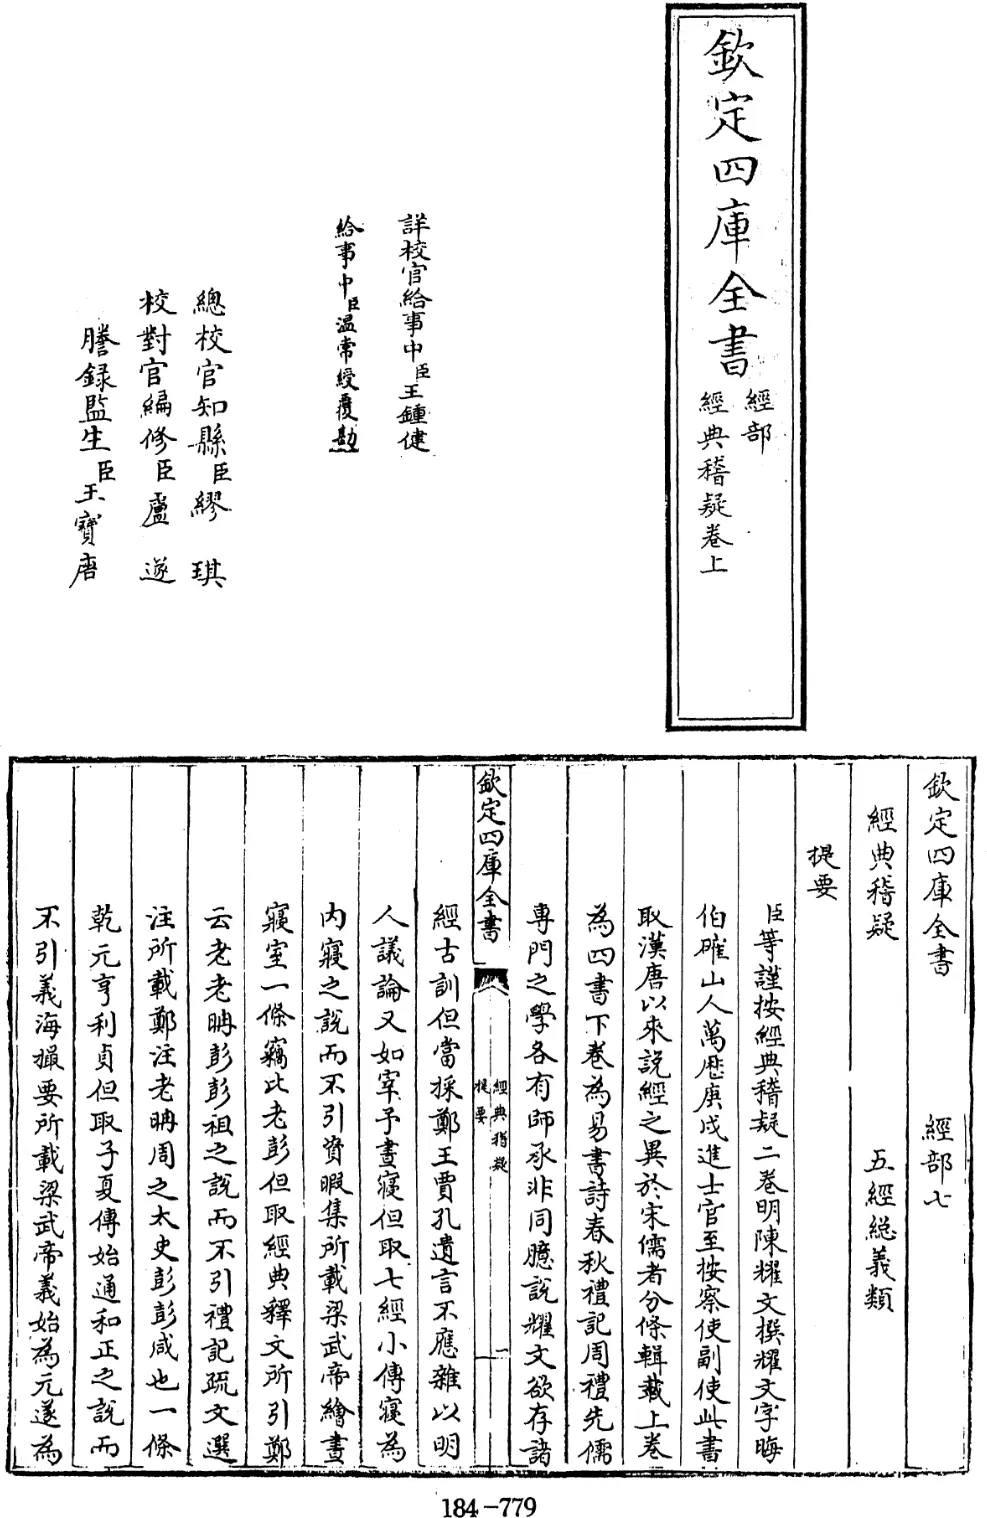 欽定四庫全書
經部
經典稽疑卷上
詳校官給事中臣王鍾健
給事中臣温常綬覆勘
總校官知縣臣繆琪
校對官編修臣盧遂
謄録監生臣王寶唐
欽定四庫全書 經部七
經典稽疑 五經緫義類
提要
臣等謹按經典稽疑二卷明陳耀文撰耀文字晦
伯確山人萬厯庚戌進士官至按察使副使此書
取漢唐以來説經之異於宋儒者分條輯載上卷
為四書下卷為易書詩春秋禮記周禮先儒
專門之學各有師承非同臆説耀文欲存諸
欽定四庫全書
經典稽疑
提要
一
經古訓但當採鄭王賈孔遺言不應雜以明
人議論又如宰予晝寢但取七經小傳寢為
内寢之説而不引資暇集所載梁武帝繪畫
寢室一條竊比老彭但取經典釋文所引鄭
云老老聃彭彭祖之説而不引禮記疏文選
注所載鄭注老聃周之太史彭彭咸也一條
乾元亨利貞但取子夏傳始通和正之説而
不引義海撮要所載梁武帝義始為元遂為
184-779